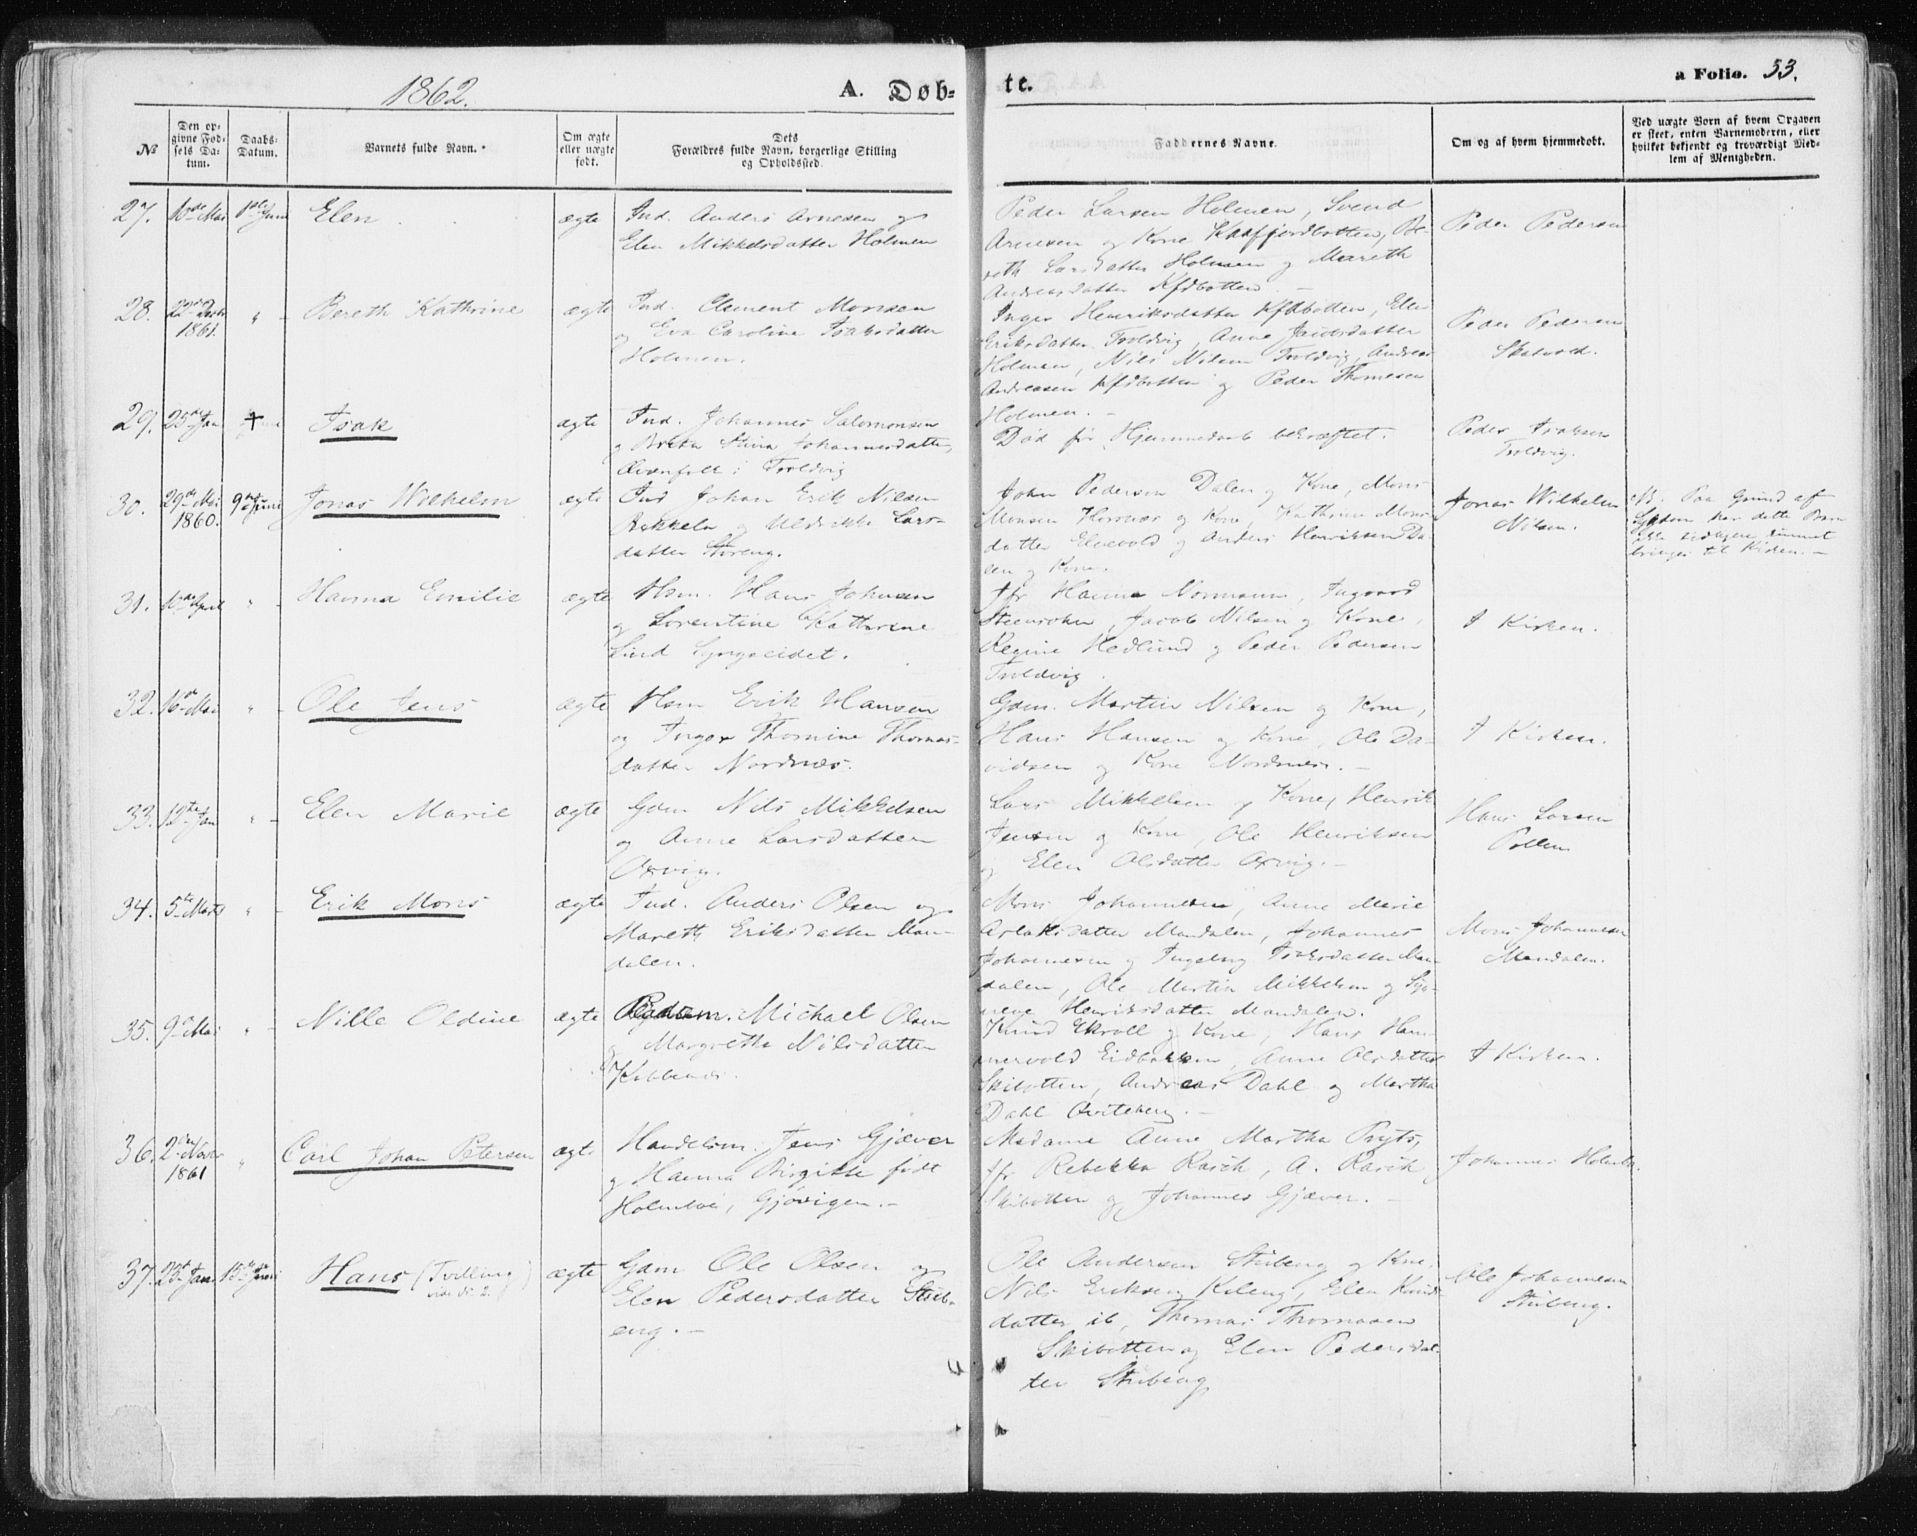 1862.
A. Døb-
te.
a Folio. 33.
№
Den op-
givne Fød-
sels Da-
tum.
Daabs-
Datum.
Barnets fulde Navn.
Om ægte
eller uægte
født.
Dets
Forældres fulde Navn, borgerlige Stilling
og Opholdssted.
Faddernes Navne.
Om og af hvem hjemmedøbt.
Ved uægte Børn af hvem Opgaven
er skeet, enten Barnemoderen, eller
hvilket bekjendt og troværdigt Med-
lem af Menigheden.
27.
10de Mai
1ste Juni
Elen
ægte
Ind. Anders Arnesen og
Elen Mikkelsdatter Holmen
Peder Larsen Holmen, Svend
Arnesen og Kone Kaafjordbotten, Be-
reth Larsdatter Holmen og Mareth
Andreasdatter Kfdbotten. -
Peder Pedersen
28.
1861.
"
Bereth Kathrine
ægte
Ind. Clement Monsen
og Eva Carolina Isaksdatter
Holmen.
Inger Henriksdatter Kfdbotten, Elen
Eriksdatter Troldvig, Anne
Holmen, Nils Nilsen Troldvig, Andreas
Andreasen Kfdbotten og Peder Thomesen
Holmen. -
Peder Pedersen
Skalvold.
29.
25de Jan
Isak
ægte
Ind. Johannes Salomonsen
og Brita Stina Johannesdatter,
i Troldvig
Død før Hjemmedaab bekræftet.
Peder Isaksen
Troldvig.
30.
29de Mai
1860.
9de Juni
Jonas Wilhelm
ægte
Ind Johan Erik Nilsen
og Uldrikke Lars-
datter Storeng.
John Pedersen Dalen og Kone, Mons
Monsen Hornæs og Kone, Kathrine Mons-
datter Elvevold og Anders Henriksen Da-
len og Kone.
Jonas Wilhelm
Nilsen.
NB. Paa Grund af
Sygdom har dette Barn
ikke tidligere kunnet
bringes til Kirken. -
31.
10de April
"
Hanna Emilie
ægte
Hsm. Hans Johnsen
og Lorentine Kathrine
Lind Lyngseidet.
Jfr Hanna Normann, Ingvard
Steensohn, Jacob Nilsen og Kone,
Regine Hedlund og Peder Pedersen
Troldvig.
I Kirken.
32.
16de Mai
"
Ole Jens
ægte
Hsm Erik Hansen
og Inger Thomine Thomas-
datter Nordnæs.
Gdm. Martin Nilsen og Kone,
Hans Hansen og Kone, Ole Da-
vidsen og Kone Nordnæs. -
I Kirken.
33.
12te Jan
"
Elen Marie
ægte
Gdm Nils Mikkelsen
og Anne Larsdatter
Oxvig.
Lars Mikkelsen og Kone, Henrik
Jensen og Kone, Ole Henriksen
og Elen Olsdatter Oxvig. -
Hans Larsen
Pollen
34.
5te Marts
"
Erik Mons
ægte
Ind. Anders Olsen og
Mareth Eriksdatter Man-
dalen.
Mons Johannesen, Anne Marie
Aslaksdatter Mandalen, Johannes
Johannesen og Ingeborg Isaksdatter Man-
dalen, Ole Martin Mikkelsen og Syn-
neve Henriksdatter Mandalen.
Mons Johannesen
Mandalen.
35.
9de Mai
"
Nille Oldine
ægte
Michael Olsen
og Margrethe Nilsdatter
Knud Ekroll og Kone, Hans Ham-
mervold Eidbakken, Anne Olsdatter
Skibotten, Andreas Dahl og Martha
Dahl Qviteberg. -
I Kirken.
36.
2den Novbr
1861
"
Carl Johan Petersen
ægte
Handelsm. Jens Gjæver
og Hanna Birgitte født
Holmboe, Gjøvigen. -
Madame Anne Martha Pryts,
Jfr Rebekka Rasch, A. Rasch
Skibotten og Johannes Gjæver. -
Johannes Holmbo.
37.
23de Jan
15de Juni
Hans (Tvilling
vide No 2.)
ægte
Gdm Ole Olsen og
Elen Pedersdatter Stub-
eng. -
Ole Andersen Stubeng og Kone,
Nils Eriksen Kileng, Elen Knuds-
datter ib, Thomas Thomassen
Skibotten og Elen Pedersdat-
ter Stubeng
Ole Johannesen
Stubeng.